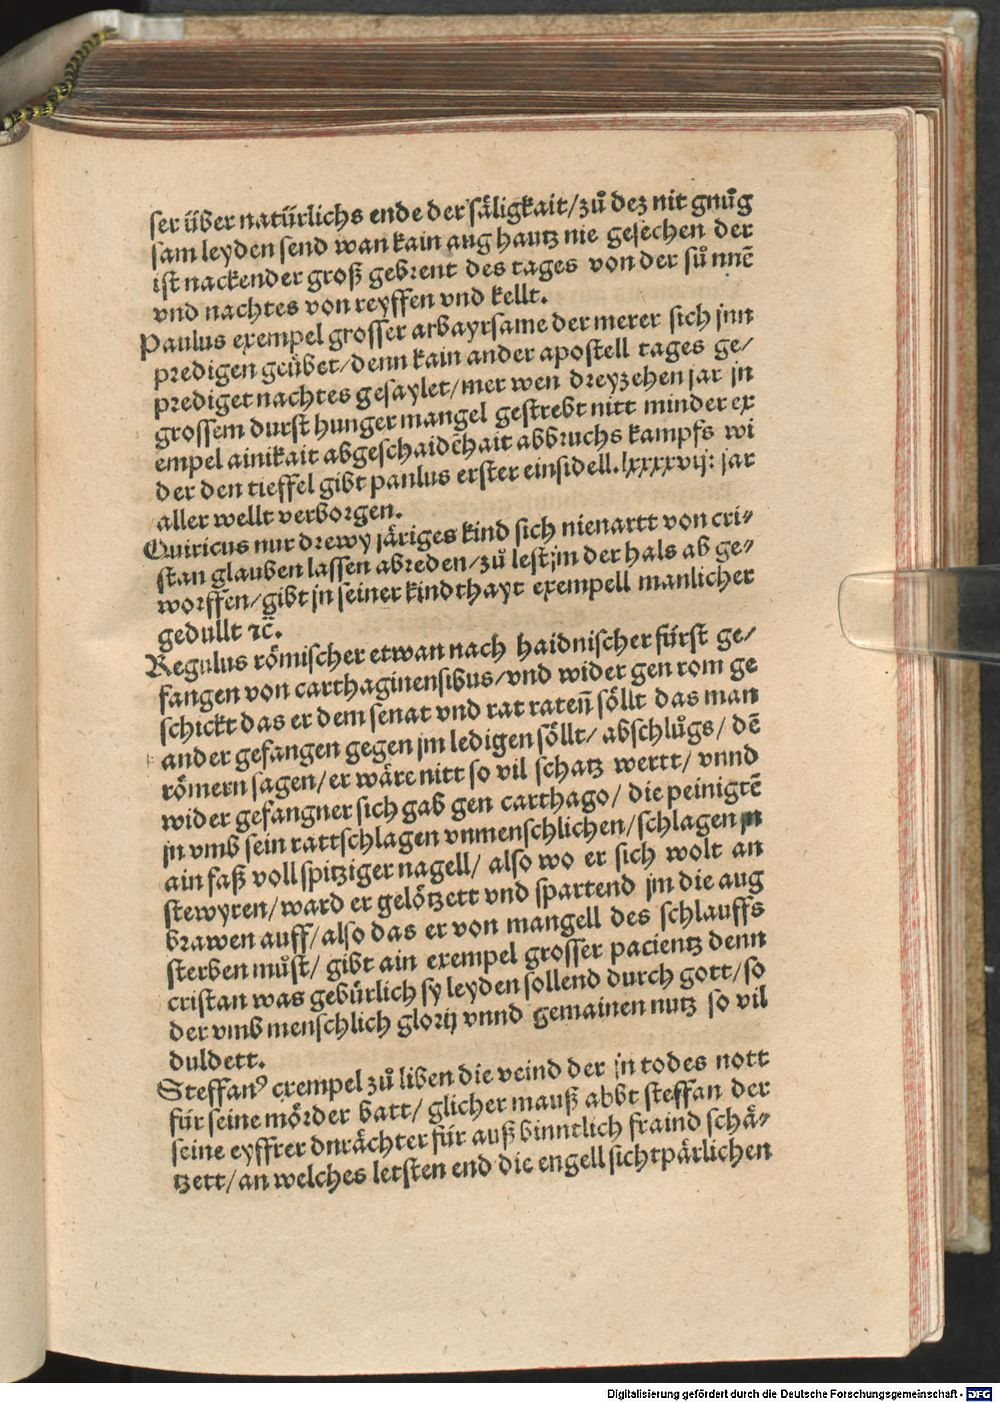 ser über natürlichs ende der säligkait/zů dez nit gnůg
sam leyden send wan kain aug hautz nie gesechen der
ist nackender groß gebrent des tages von der sů nnē
vnd nachtes von reyffen vnd kellt.
Paulus exempel grosser arbaytsame der merer sich jnn
predigen geübet/denn kain ander apostell tages ge/
prediget nachtes gesaylet/mer wen dreyzehen jar jn
grossem durst hunger mangel gestrebt nitt minder ex
empel ainikait abgeschaidēhait abbruchs kampfs wi
der den tieffel gibt paulus erster einsidell.lxxxxvij: jar
aller wellt verborgen.
Quiricus nur drewy järiges kind sich nienartt von cri/
stan glauben lassen abreden/zů lest jm der hals ab ge/
worffen/gibt jn seiner kindthayt exempell manlicher
gedullt ⁊c̄.
Regulus römischer etwan nach haidnischer fürst ge/
fangen von carthaginensibus/vnd wider gen rom ge
schickt das er dem senat vnd rat ratenn̄ söllt das man
ander gefangen gegen jm ledigen söllt/ abschlůgs/ dē
römern sagen/er wäre nitt so vil schatz wertt/ vnnd
wider gefangner sich gab gen carthago/ die peinigtē
jn vmb sein rattschlagen vnmenschlichen/schlagen jn
ain faß voll spitziger nagell/ also wo er sich wolt an
stewyren/ward er gelötzett vnd spartend jm die aug
brawen auff/also das er von mangell des schlauffs
sterben můst/ gibt ain exempel grosser pacientz denn
cristan was gebürlich sy leyden sollend durch gott/so
der vmb menschlich glorij vnnd gemainen nutz so vil
duldett.
Steffanꝰ exempel zů liben die veind der jn todes nott
für seine mörder batt/ glicher mauß abbt steffan der
seine eyffrer dnrächter für auß binntlich fraind schä/
tzett/an welches letsten end die engell sichtpärlichen
Digitalisierung gefördert durch die Deutsche Forschungsgemeinschaft - DFG